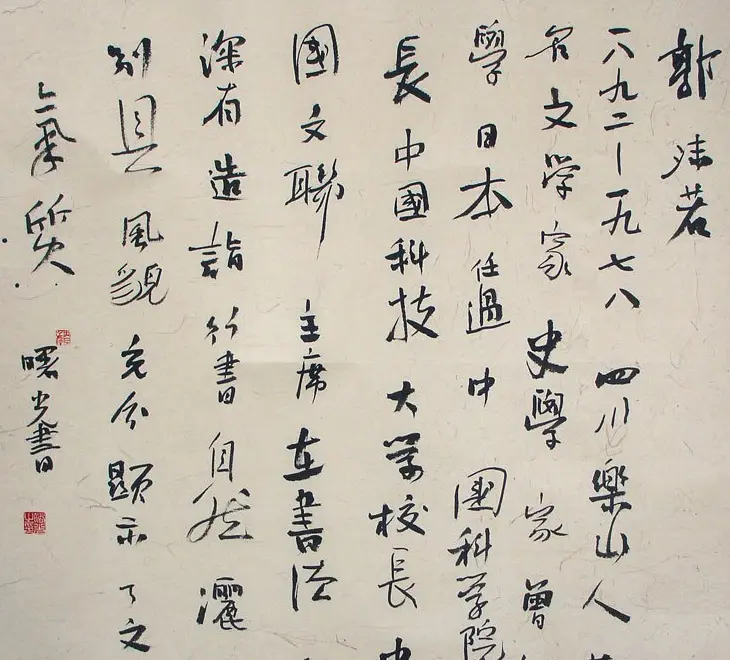 郭沫若
一八九二一一九七八 四川樂山人
名文学家史學家曾
學日本任過中國科学院
長中國科技大学校長中
國文聯主席在書法
深有造詣行書自然灑
別具風貌充分顯示了文
氣質
曙光書